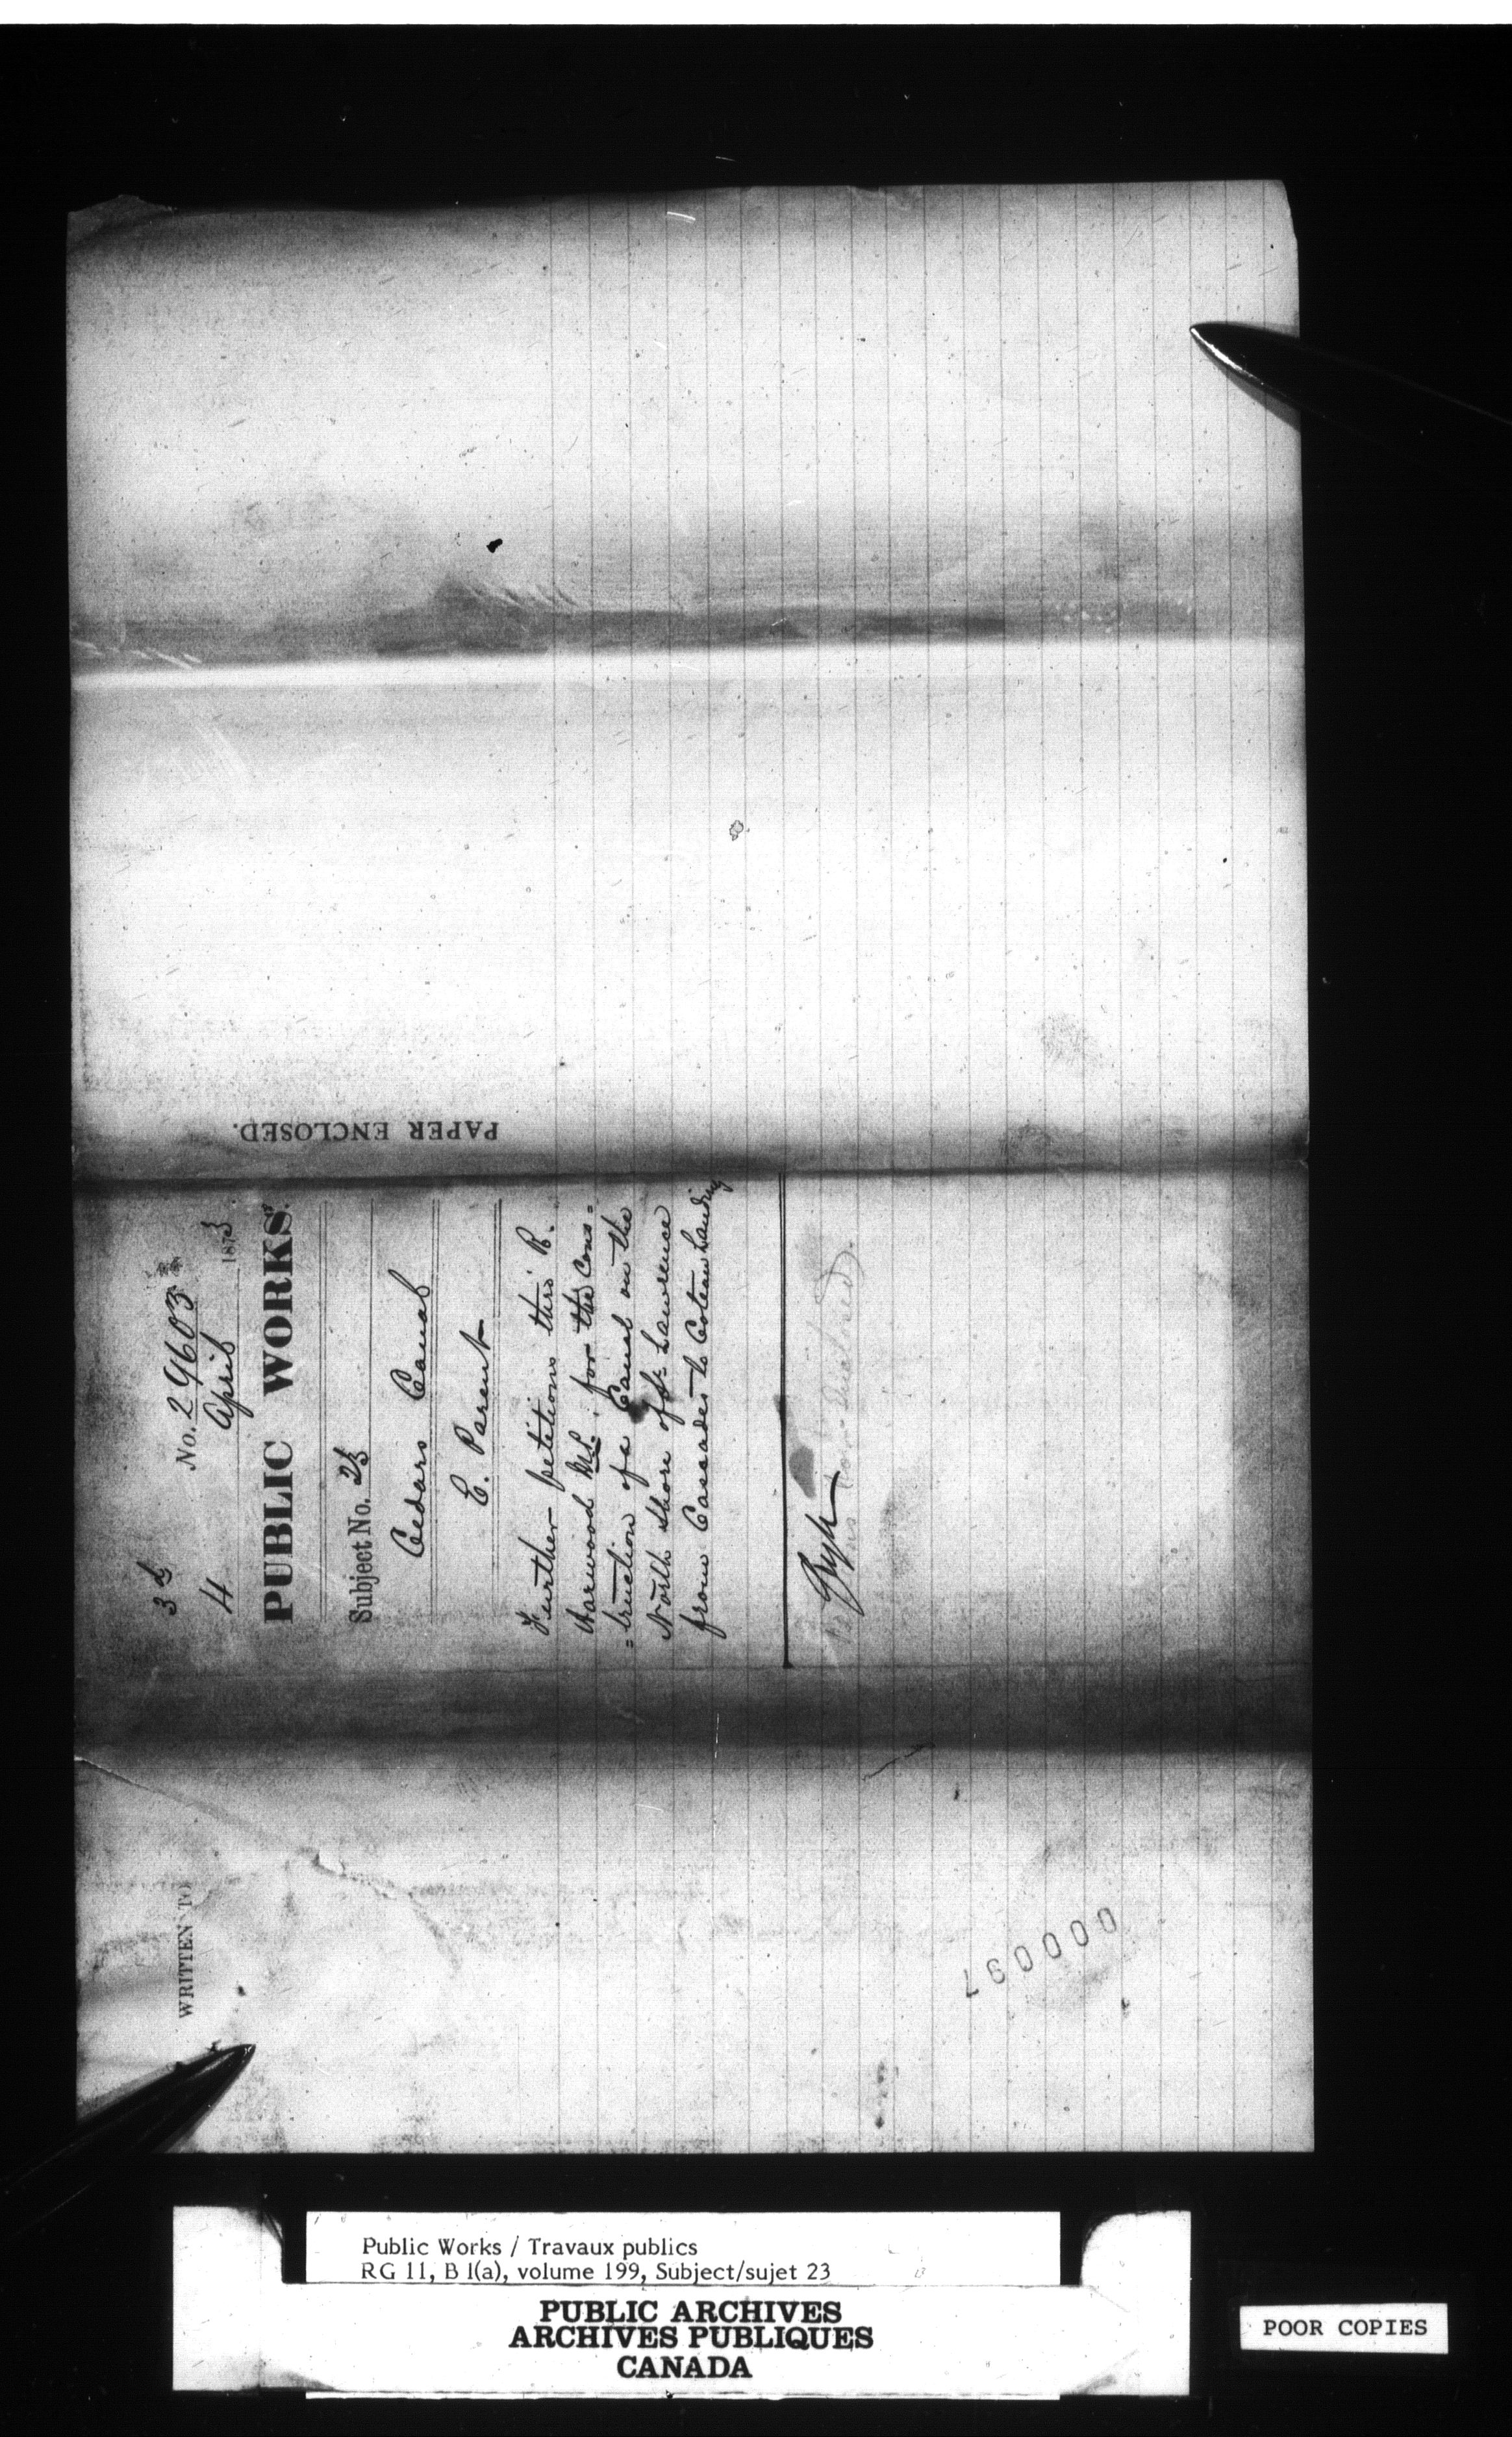 3d
No. 29603
4 April 1873
PUBLIC WORKS.
Subject No. 23
Cedars Canal
E. Parent
Further petitions thro' R.
Harwood MP. for the Cons=
=truction of a Canal on the
North Shore of St Lawrence
from Cascades to Coteau Landing
PAPER ENCLOSED.
WRITTEN TO
000097
Public Works / Travaux publics
RG 11, B 1(a), volume 199, Subject/sujet 23
PUBLIC ARCHIVES
ARCHIVES PUBLIQUES
CANADA
POOR COPIES